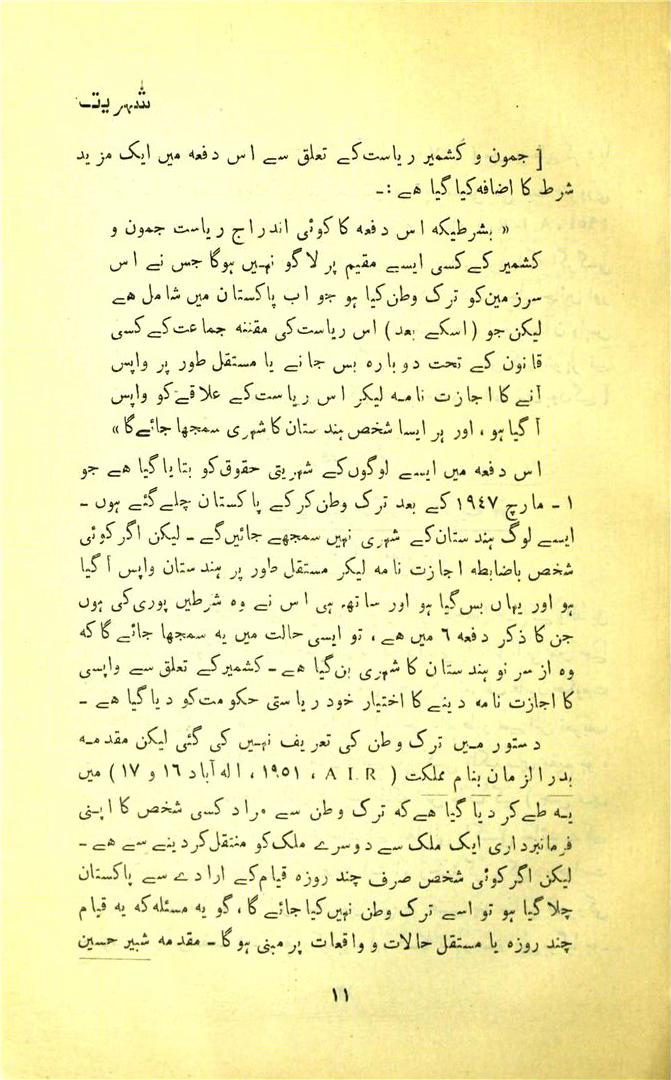 شہریت
[ جموں و کشمیر ریاست کے تعلق سے اس دفعہ میں ایک مزید
شرط کا اضافہ کیا گیا ہے :-
« بشرطیکہ اس دفعہ کا کوئی اندراج ریاست جموں و
کشمیر کے کسی ایسے مقیم پر لاگو نہیں ہوگا جس نے اس
سرزمین کو ترک وطن کیا ہو جو اب پاکستان میں شامل ہے
لیکن جو ( اسکے بعد ) اس ریاست کی مقننہ جماعت کے کسی
قانون کے تحت دوبارہ بس جانے یا مستقل طور پر واپس
آنے کا اجازت نامہ لیکر اس ریاست کے علاقے کو واپس
آگیا ہو ، اور ہر ایسا شخص ہندستان کا شہری سمجھا جائے گا »
اس دفعہ میں ایسے لوگوں کے شہریتی حقوق کو بتایا گیا ہے جو
۱ - مارچ ۱۹٤۷ کے بعد ترک وطن کرکے پاکستان چلے گئے ہوں -
ایسے لوگ ہندستان کے شہری نہیں سمجھے جائیں گے - لیکن اگر کوئی
شخص باضابطہ اجازت نامہ لیکر مستقل طور پر ہندستان واپس آگیا
ہو اور یہاں بس گیا ہو اور ساتھ ہی اس نے وہ شرطیں پوری کی ہوں
جن کا ذکر دفعہ ٦ میں ہے ، تو ایسی حالت میں یہ سمجھا جائے گا کہ
وہ از سر نو ہندستان کا شہری بن گیا ہے - کشمیر کے تعلق سے واپسی
کا اجازت نامہ دینے کا اختیار خود ریاستی حکومت کو دیا گیا ہے -
دستور میں ترک وطن کی تعریف نہیں کی گئی لیکن مقدمہ
بدر الزمان بنام مملکت ( A I R ، ۱۹٥۱ ، الہ آباد ۱٦ و ۱۷ ) میں
یہ طے کر دیا گیا ہے کہ ترک وطن سے مراد کسی شخص کا اپنی
فرمانبرداری ایک ملک سے دوسرے ملک کو منتقل کر دینے سے ہے -
لیکن اگر کوئی شخص صرف چند روزہ قیام کے ارادے سے پاکستان
چلا گیا ہو تو اسے ترک وطن نہیں کیا جائے گا ، گو یہ مسئلہ کہ یہ قیام
چند روزہ یا مستقل حالات و واقعات پر مبنی ہوگا - مقدمہ شبیر حسین
۱۱